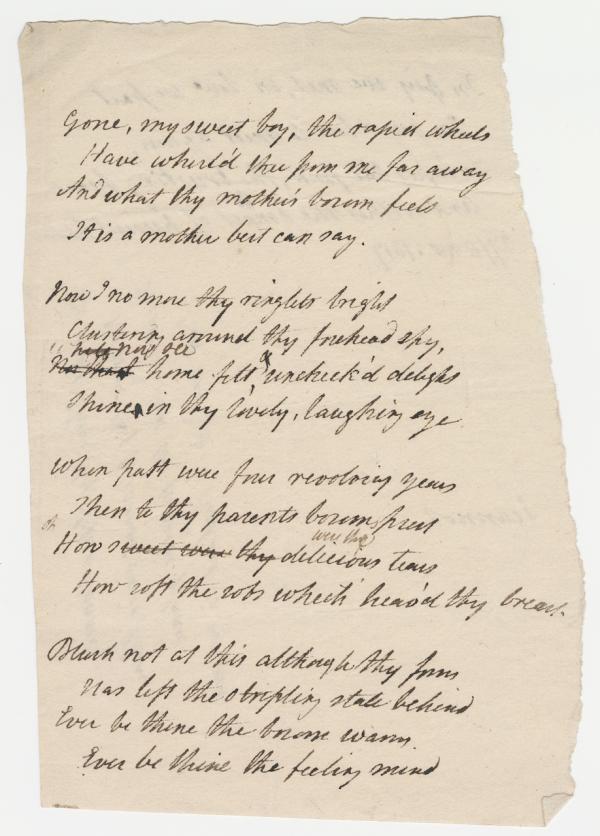 Gone, my sweet boy, the rapid wheels
Have whirl'd thee from me far away
And what thy mother's bosom feels
It is a mother best can say.
Now I no more thy ringlets bright
Clustering around thy forehead spy,
now see
home felt & uncheck'd delight
Shine in thy lovely, laughing eye
When past were four revolving years
Then to thy parents bosom prest
Oh
were thy
How sweet were thy delicious tears
How soft the sobs which heav'd thy breast
Blush not at this although thy form
Has left the stripling state behind
Ever be thine the bosom warm
Ever be thine the feeling mind